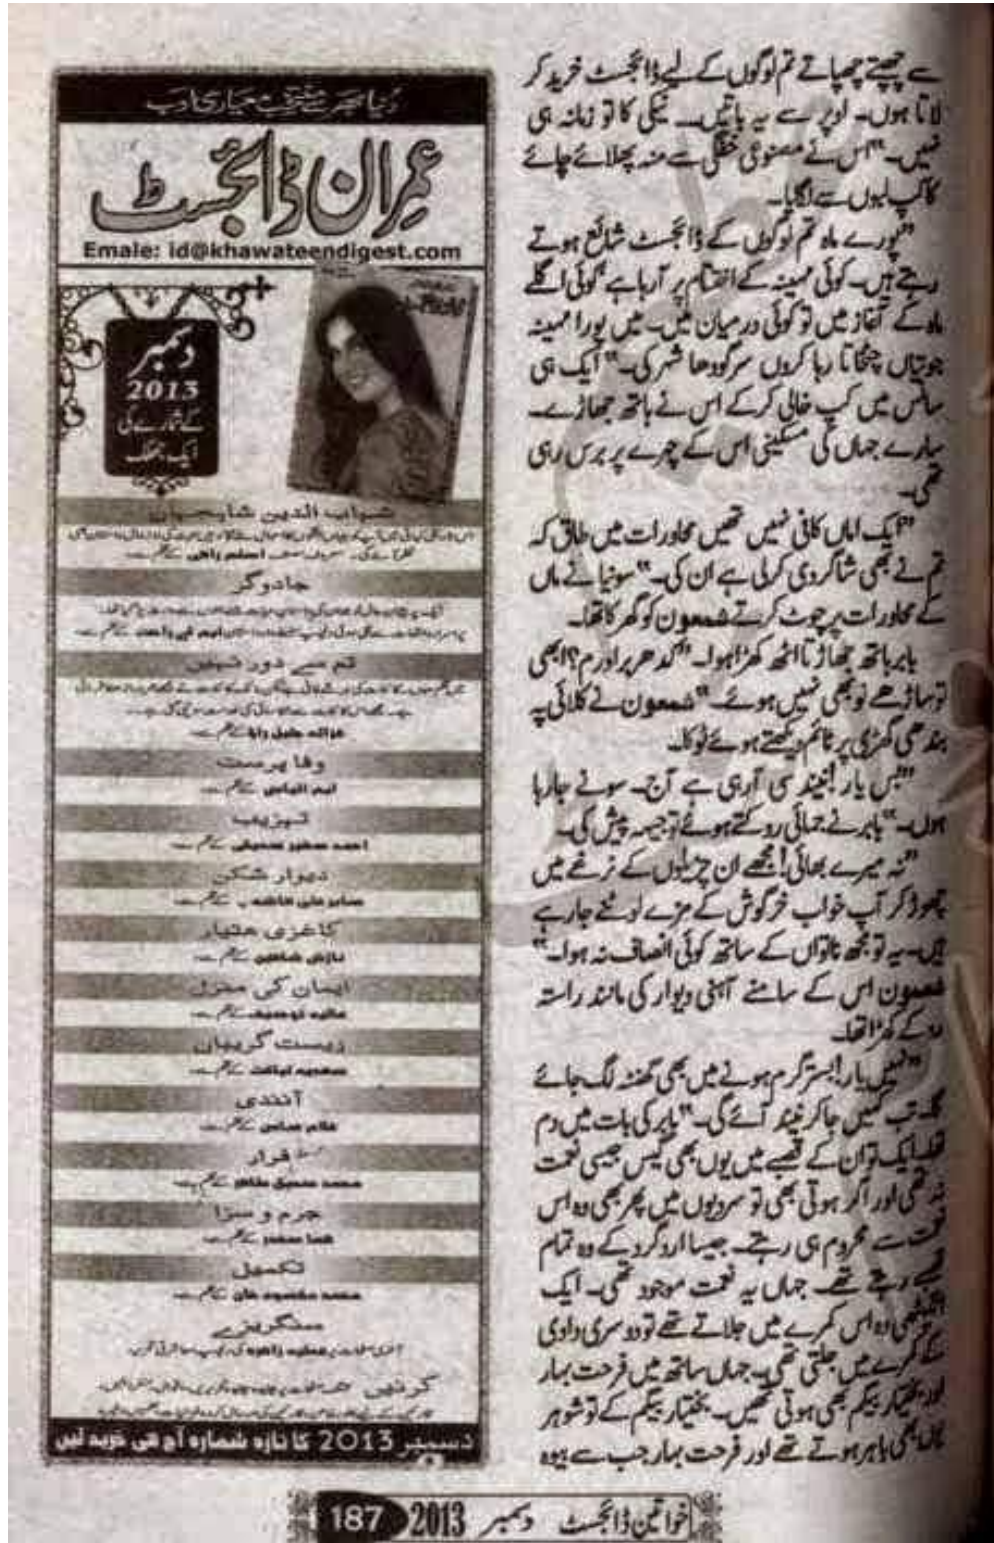 سے چھپتے چھپاتے تم لوگوں کے لیے ڈائجسٹ خرید کر
لاتا ہوں۔ اوپر سے یہ باتیں۔ نیکی کا تو زمانہ ہی
نہیں۔" اس نے مصنوعی خفگی سے منہ پھلائے چائے
کا کپ لبوں سے لگایا۔
"پورے ماہ تم لوگوں کے ڈائجسٹ شائع ہوتے
رہتے ہیں۔ کوئی مہینہ کے اختتام پر آرہا ہے' کوئی اگلے
ماہ کے آغاز میں تو کوئی درمیان میں۔ میں پورا مہینہ
جوتیاں چٹخاتا رہا کروں سرگودھا شہر کی۔" ایک ہی
سانس میں کپ خالی کرکے اس نے ہاتھ جھاڑے۔
سارے جہاں کی مسکینی اس کے چہرے پر برس رہی
تھی۔
"ایک اماں کافی نہیں تھیں محاورات میں طاق کہ
تم نے بھی شاگردی کرلی ہے ان کی۔" سونیا نے ماں
کے محاورات پر چوٹ کرتے شمعون کو گھرکا تھا۔
بابر ہاتھ جھاڑتا اٹھ کھڑا ہوا۔ "کدھر برادرم؟ ابھی
تو ساڑھے نو بھی نہیں ہوئے۔" شمعون نے کلائی پہ
بندھی گھڑی پر ٹائم دیکھتے ہوئے ٹوکا۔
"بس یار! نیند سی آرہی ہے آج۔ سونے جارہا
ہوں۔" بابر نے جمائی روکتے ہوئے توجیہہ پیش کی۔
"نہ میرے بھائی! مجھے ان چڑیلوں کے نرغے میں
چھوڑ کر آپ خواب خرگوش کے مزے لوٹنے جارہے
ہیں۔ یہ تو مجھ ناتواں کے ساتھ کوئی انصاف نہ ہوا۔"
شمعون اس کے سامنے آہنی دیوار کی مانند راستہ
روکے کھڑا تھا۔
"نہیں یار! بستر گرم ہونے میں بھی گھنٹہ لگ جائے
گا۔ تب کہیں جاکر نیند آئے گی۔" بابر کی بات میں دم
تھا۔ ایک تو ان کے قصبے میں یوں بھی گیس جیسی نعمت
نہ تھی اور اگر ہوتی بھی تو سردیوں میں پھر بھی وہ اس
نعمت سے محروم ہی رہتے۔ جیسا اردگرد کے وہ تمام
قصبے رہتے تھے۔ جہاں یہ نعمت موجود تھی۔ ایک
انگیٹھی وہ اس کمرے میں جلاتے تھے تو دوسری دادی
کے کمرے میں جلتی تھی۔ جہاں ساتھ میں فرحت بہار
اور بختیار بیگم بھی ہوتی تھیں۔ بختیار بیگم کے تو شوہر
ہاں بھی باہر ہوتے تھے اور فرحت بہار جب سے بیوہ
دنیا بھر سے منتخب معیاری ادب
عمران ڈائجسٹ
Emale: id@khawateendigest.com
دسمبر
2013
کے شمارے کی
ایک جھلک
شہاب الدین شاہجہان
جادوگر
تم سے دور نہیں
وفا پرست
ایم الیاس کے قلم سے
احمد صغیر صدیقی کے قلم سے
دیوار شکن
کاغذی ہتھیار
ایمان کی منزل
آنندی
غلام عباس کے قلم سے
فرار
جرم و سزا
تکمیل
سنگریزے
کرنیں
دسمبر 2013 کا تازہ شمارہ آج ہی خرید لیں
خواتین ڈائجسٹ دسمبر 2013 187